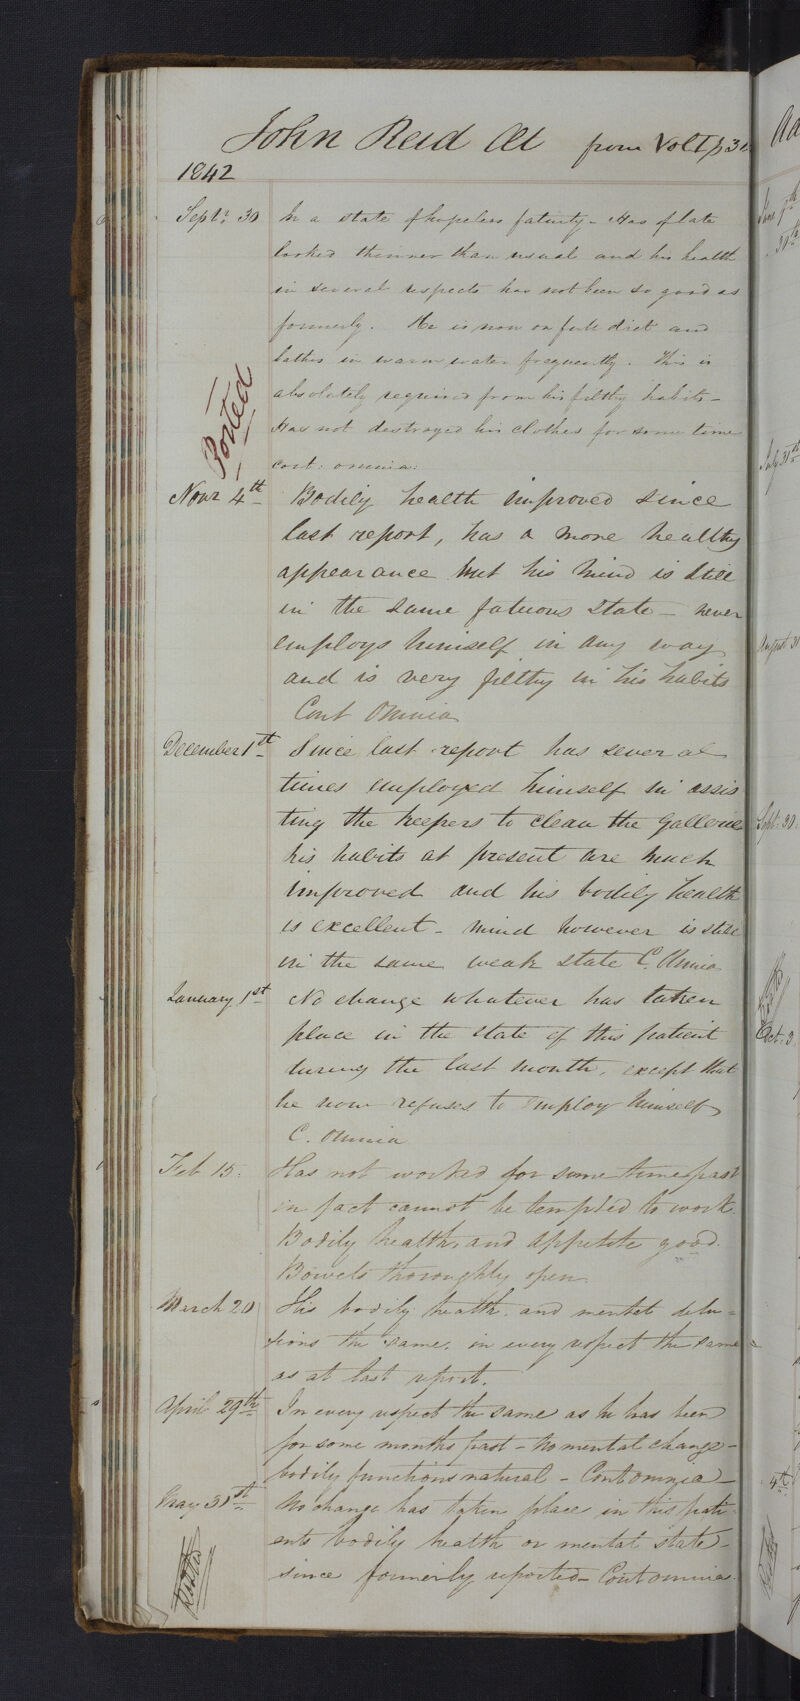 John Reid Æt from Vol I p 3
1842
Septr. 30 In a state of hopeless fatuity - Has of late
looked thinner than usual and his health
in several respects has not been so good as
formerly. He is now on full diet and
bathes in warm water frequently. This is
absolutely required from his filthy habits -
Has not destroyed his clothes for some time
cont: omnia.
Posted
Novr 4th Bodily health improved since
last report, has a more healthy
appearance but his mind is still
in the same fatuous state - never
employs himself in any way
and is very filthy in his habits
Cont Omnia
December 1st Since last report has several
times employed himself in assis
ting the keepers to clean the Galleries
his habits at present are much
improved and his bodily health
is excellent - mind however is still
in the same weak state C. Omnia
January 1st No change whatever has taken
place in the state of this patient
during the last month, except that
he now refuses to employ himself
C. Omnia
Feb 15. Has not worked for some time past
in fact cannot be tempted to work.
Bodily health and appetite good.
Bowels thoroughly open.
March 20 His bodily health and mental delu-
sions the same. in every respect the same
as at last report.
April 29th In every respect the same as he has been
for some months past - No mental change -
bodily functions natural - Cont omnia -
May 31st No change has taken place in this pati-
ents bodily health or mental state -
since formerly reported - Cont omnia.
Posted
June 7th
30th
July 31st
August 31
Septr. 30
Oct. 3
4th